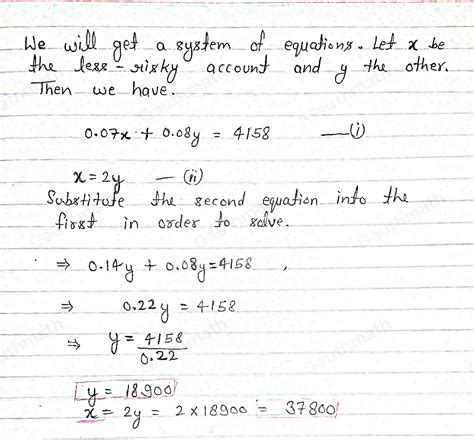 We will get a system of equations. Let x be
the less-risky account and y the other.
Then we have.
0.07x + 0.08y = 4158 —(i)
x = 2y — (ii)
Substitute the second equation into the
first in order to solve.
⇒ 0.14y + 0.08y = 4158 ,
⇒ 0.22y = 4158
⇒ y = 4158/0.22
y = 18900
x = 2y = 2×18900 = 37800